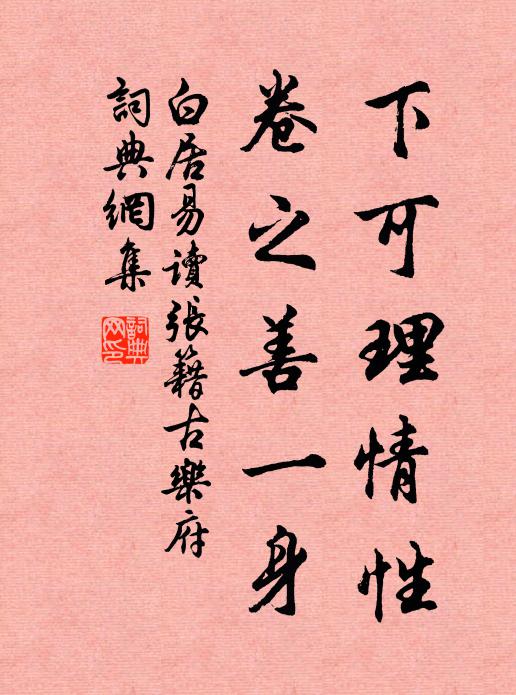 下可理情性
卷之善一身
白居易讀張籍古樂府
詞典網集
詞典網印